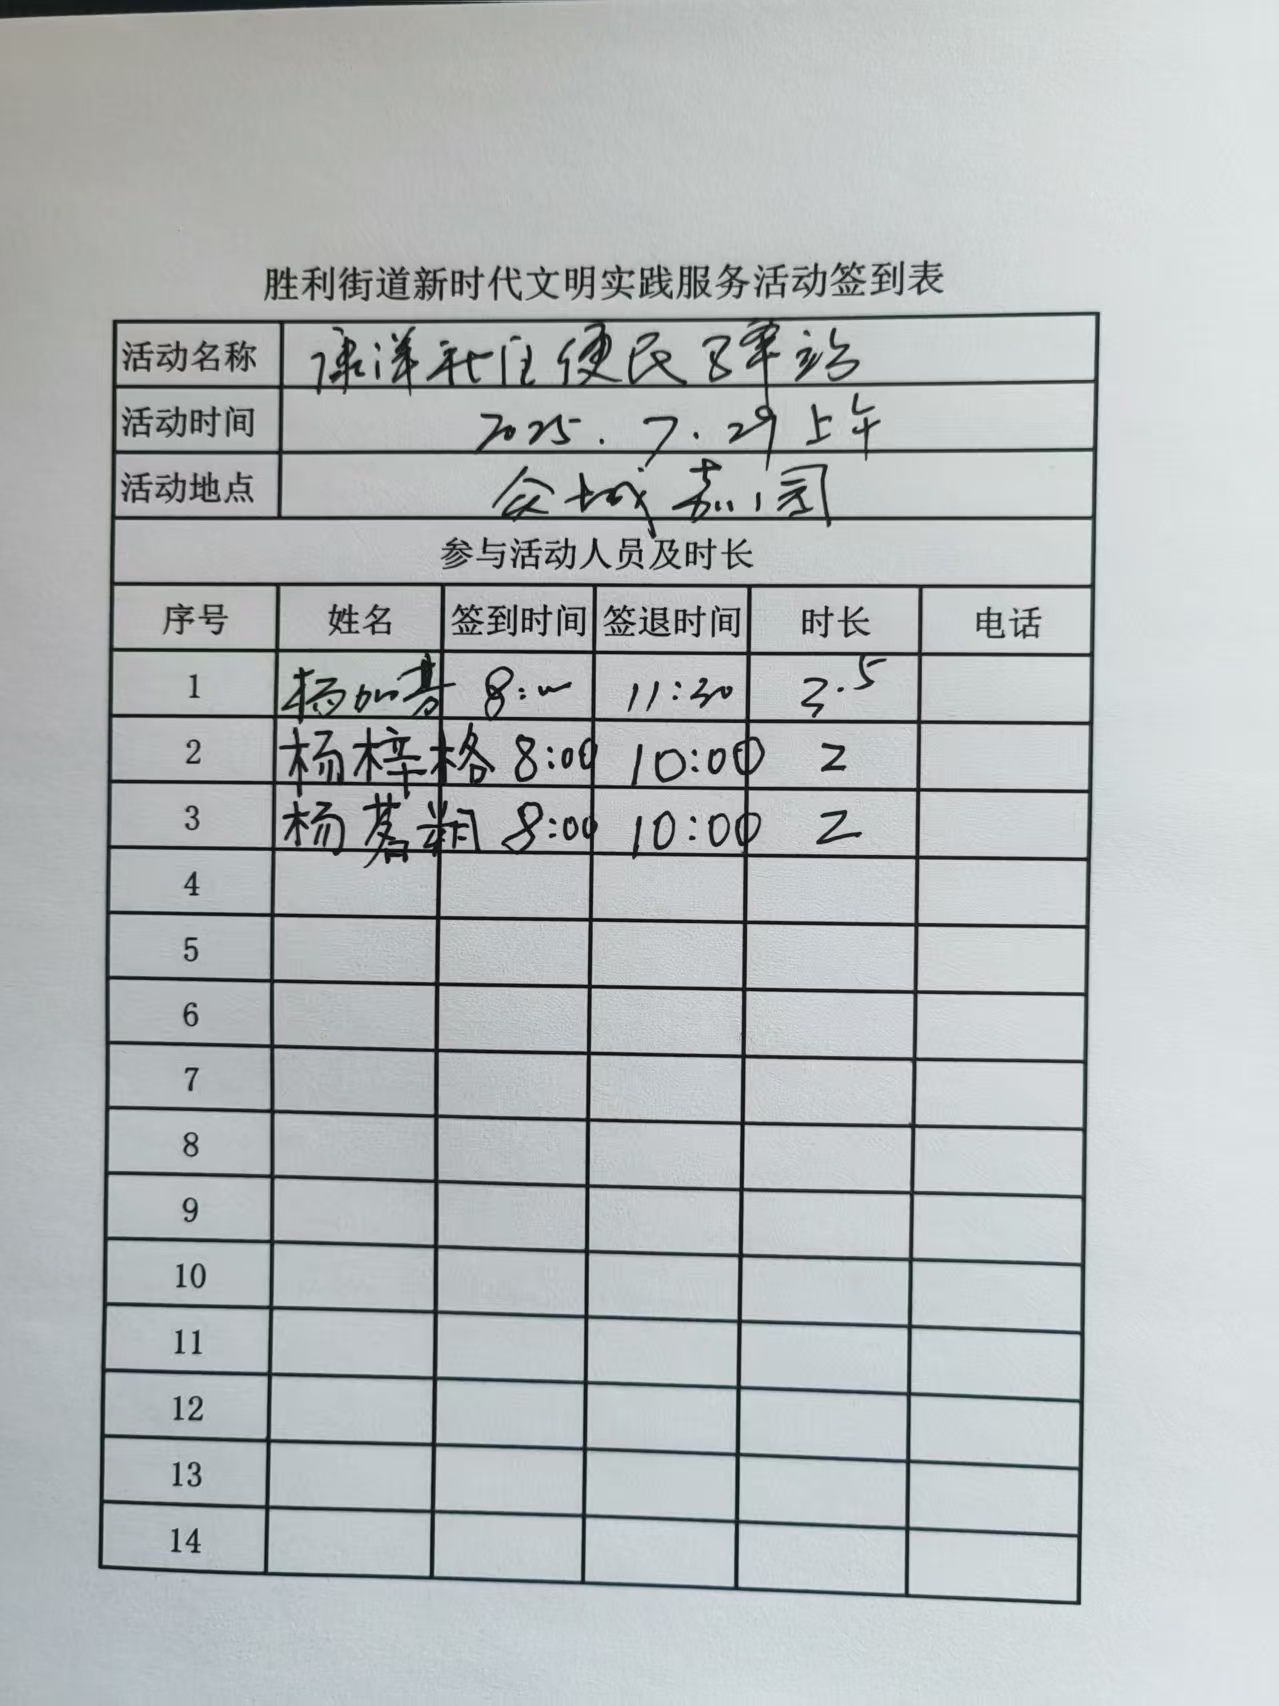 胜利街道新时代文明实践服务活动签到表
活动名称 康洋社区便民驿站
活动时间 2025.7.29上午
活动地点 众城嘉园
参与活动人员及时长
序号 姓名 签到时间 签退时间 时长 电话
1 杨加 8:00 11:30 3.5
2 杨梓格 8:00 10:00 2
3 杨 翔 8:00 10:00 2
4
5
6
7
8
9
10
11
12
13
14